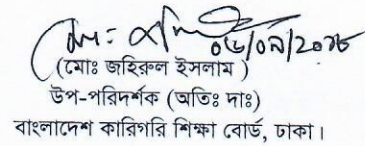 ০৬/০৯/২০১৮
(মোঃ জহিরুল ইসলাম )
উপ-পরিদর্শক (অতিঃ দাঃ)
বাংলাদেশ কারিগরি শিক্ষা বোর্ড, ঢাকা।